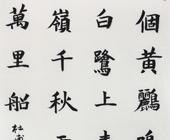 個黃鸝鳴
白鷺上青
嶺千秋
萬里船
杜甫